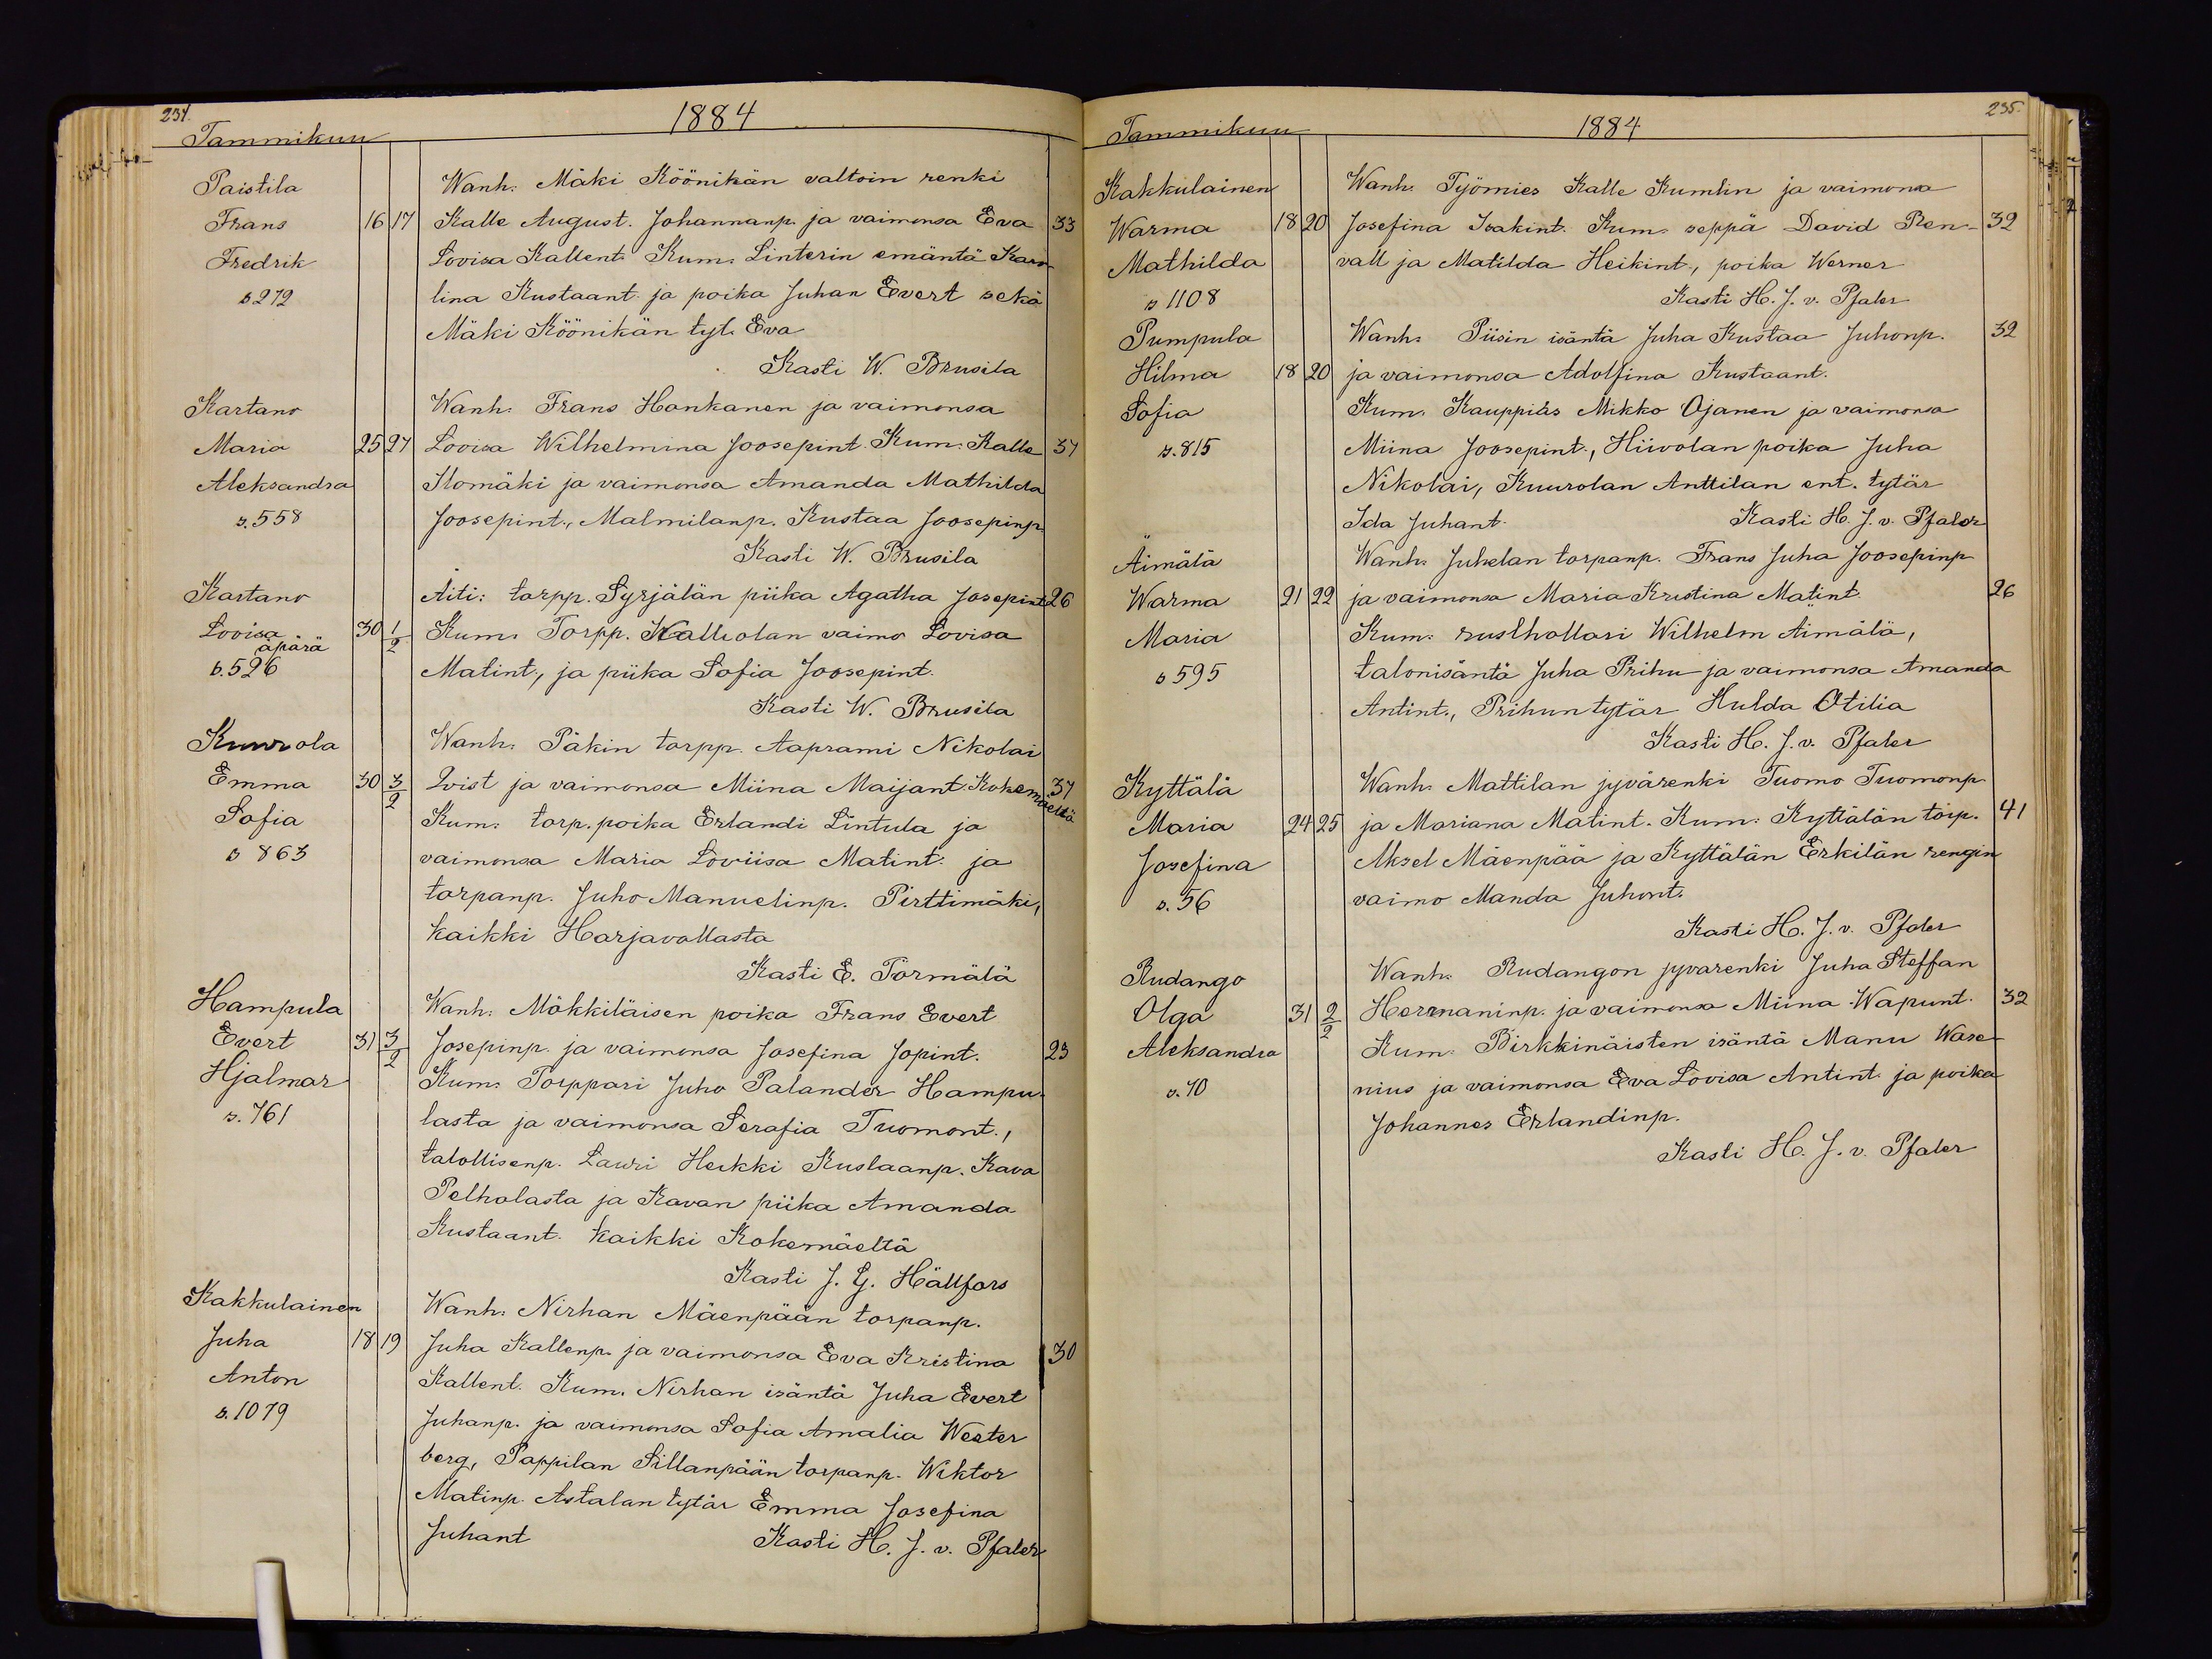 234.
Tammikuu 1884
Paistila Wanh. Mäki Köönikän valtoin renki
Frans 16 17 Kalle August. Johannanp. ja vaimonsa Eva 33
Fredrik Lovisa Kallent. Kum. Linterin emäntä Karo
s 272 lina Kustaant. ja poika Juhan Evert sekä
Mäki Köönikän tyt. Eva
Kasti W. Brusila
Kartano Wanh. Frans Hankanen ja vaimonsa
Maria 25 27 Lovisa Wilhelmina Joosepint. Kum: Kalle 37
Aleksandra Ilomäki ja vaimonsa Amanda Mathilda
s. 558 Joosepint., Malmilanp. Kustaa Joosepinp.
Kasti W. Brusila
Kartano Äiti: torpp. Syrjälän piika Agatha Josepint. 26
Lovisa 30 1/2 Kum. Torpp. Kalliolan vaimo Lovisa
äpärä
s. 526 Matint., ja piika Sofia Joosepint.
Kasti W. Brusila
Kuurola Wanh. Päkin torpp. Aaprami Nikolai
Emma 30 3/2 Qvist ja vaimonsa Miina Maijant. Kokemäeltä 37
Sofia Kum: torp. poika Erlandi Lintula ja
s 863 vaimonsa Maria Loviisa Matint. ja
torpanp. Juho Manuelinp. Pirttimäki,
kaikki Harjavallasta
Kasti E. Törmälä
Hampula Wanh: Mökkiläisen poika Frans Evert
Evert 31 3/2 Josepinp. ja vaimonsa Josefina Jopint. 23
Hjalmar Kum. Torppari Juho Palander Hampu-
s. 761 lasta ja vaimonsa Serafia Tuomont.,
talollisenp. Lauri Heikki Kustaanp. Kava
Pelholasta ja Kavan piika Amanda
Kustaant. kaikki Kokemäeltä
Kasti J. G. Hällfors
Kakkulainen Wanh. Nirhan Mäenpään torpanp.
Juha 18 19 Juha Kallenp. ja vaimonsa Eva Kristina 30
Anton Kallent. Kum. Nirhan isäntä Juha Evert
s. 1079 Juhanp. ja vaimonsa Sofia Amalia Wester
berg, Pappilan Sillanpään torpanp. Wiktor
Matinp. Astalan tytär Emma Josefina
Juhant Kasti H. J. v. Pfaler
235.
Tammikuu 1884
Kakkulainen Wanh. Työmies Kalle Kumlin ja vaimonsa
Warma 18 20 Josefina Isakint. Kum. seppä David Ren- 32
Mathilda vall ja Matilda Heikint., poika Werner
s 1108 Kasti H. J. v. Pfaler
Pumpula Wanh. Piisin isäntä Juha Kustaa Juhonp. 32
Hilma 18 20 ja vaimonsa Adolfina Kustaant.
Sofia Kum. Kauppias Mikko Ojanen ja vaimonsa
s. 815 Miina Joosepint., Hiivolan poika Juha
Nikolai, Kuurolan Anttilan ent. tytär
Ida Juhant. Kasti H. J. v. Pfaler
Äimälä Wanh. Juhelan torpanp. Frans Juha Joosepinp
Warma 21 22 ja vaimonsa Maria Kristina Matint. 26
Maria Kum. rusthollari Wilhelm Äimälä,
s 595 talonisäntä Juha Prihu ja vaimonsa Amanda
Antint., Prihun tytär Hulda Otilia
Kasti H. J. v. Pfaler
Kyttälä Wanh. Mattilan jyvärenki Tuomo Tuomonp.
Maria 24 25 ja Mariana Matint. Kum: Kyttälän torp. 41
Josefina Aksel Mäenpää ja Kyttälän Erkilän rengin
s. 56 vaimo Manda Juhont.
Kasti H. J. v. Pfaler
Rudango Wanh. Rudangon jyvarenki Juha Steffan
Olga 31 2/2 Hermaninp. ja vaimonsa Miina Wapunt. 32
Aleksandra Kum. Birkkinäisten isäntä Manu Wase-
s. 70 nius ja vaimonsa Eva Lovisa Antint. ja poika
Johannes Erlandinp.
Kasti H. J. v. Pfaler